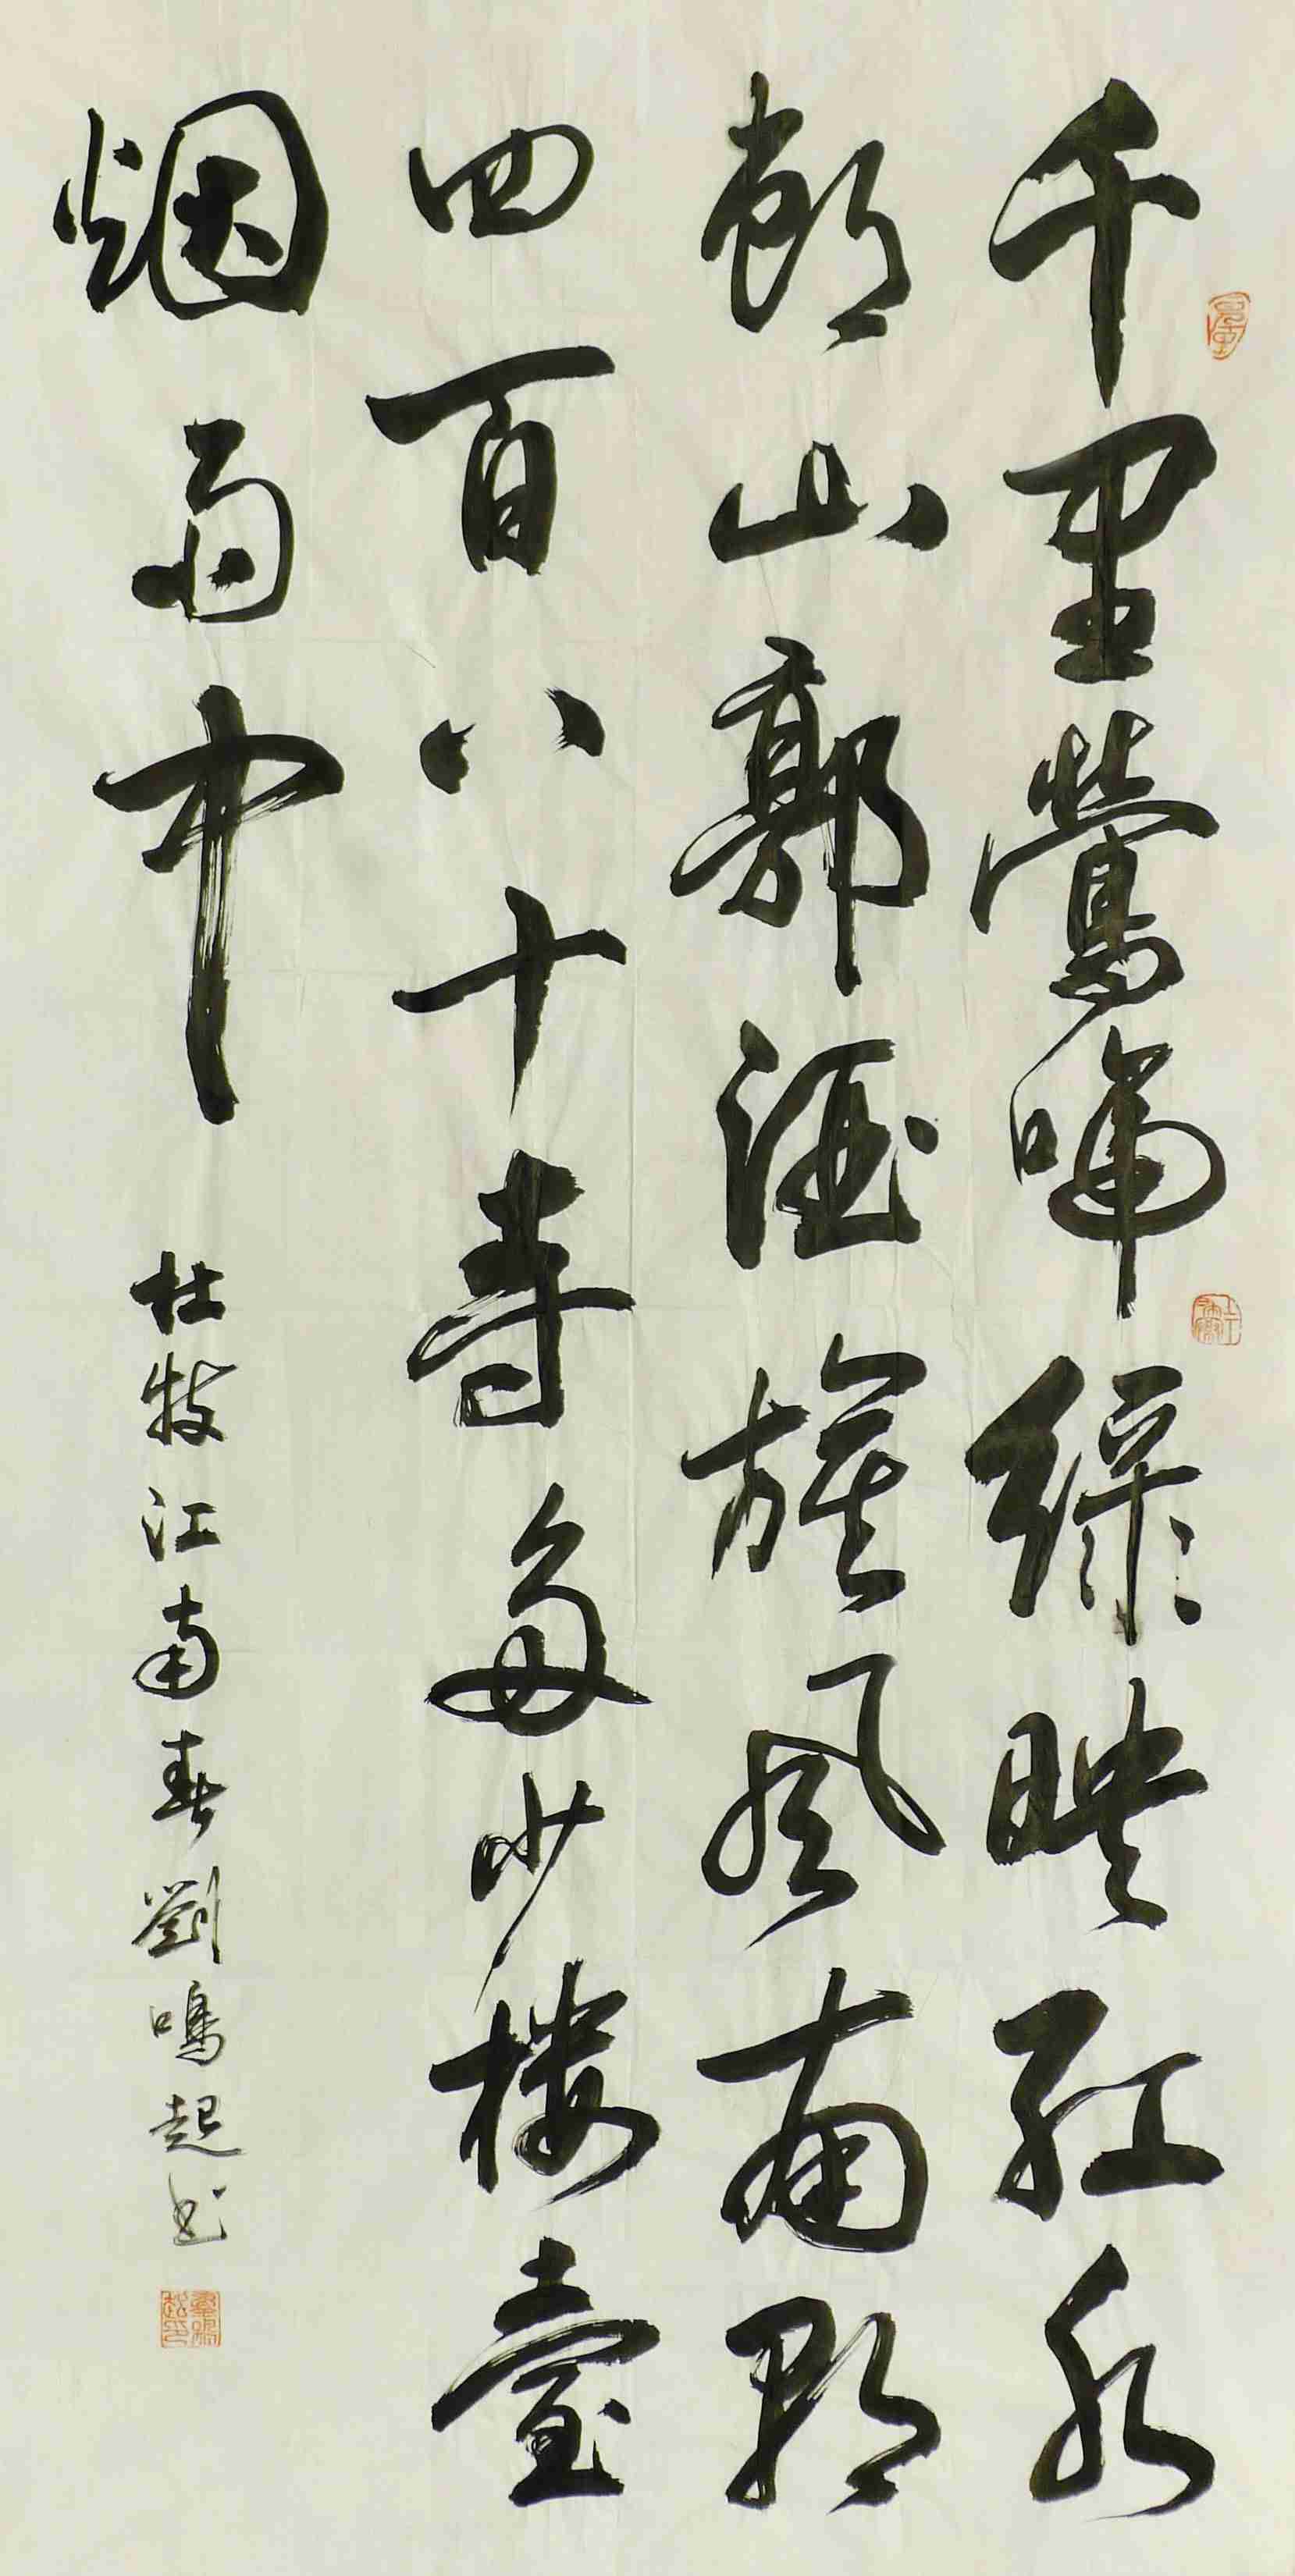 千里鶯啼綠映紅水
邨山郭酒旗風南朝
四百八十寺多少樓臺
烟雨中
杜牧江南春劉鳴起书